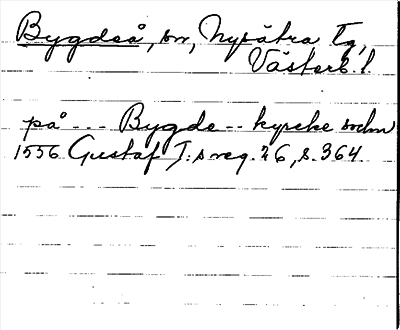 Bygdeå, sn, Nysätra tg,
Västerb. l.
på --- Bygde -- kyrcke sochn
1556 Gustaf I:s reg. 26, s. 364